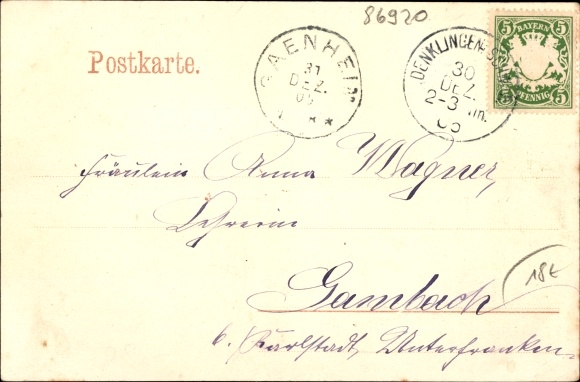 86920
Postkarte.
GAENHEIM
31
DEZ.
DENKLINGEN
30
DEZ.
2-3 Nm.
05
5 5
BAYERN
PFENNIG
5 5
Fräulein Anna Wagner,
Lehrerin
Gambach
18t
b. Karlstadt, Unterfranken.